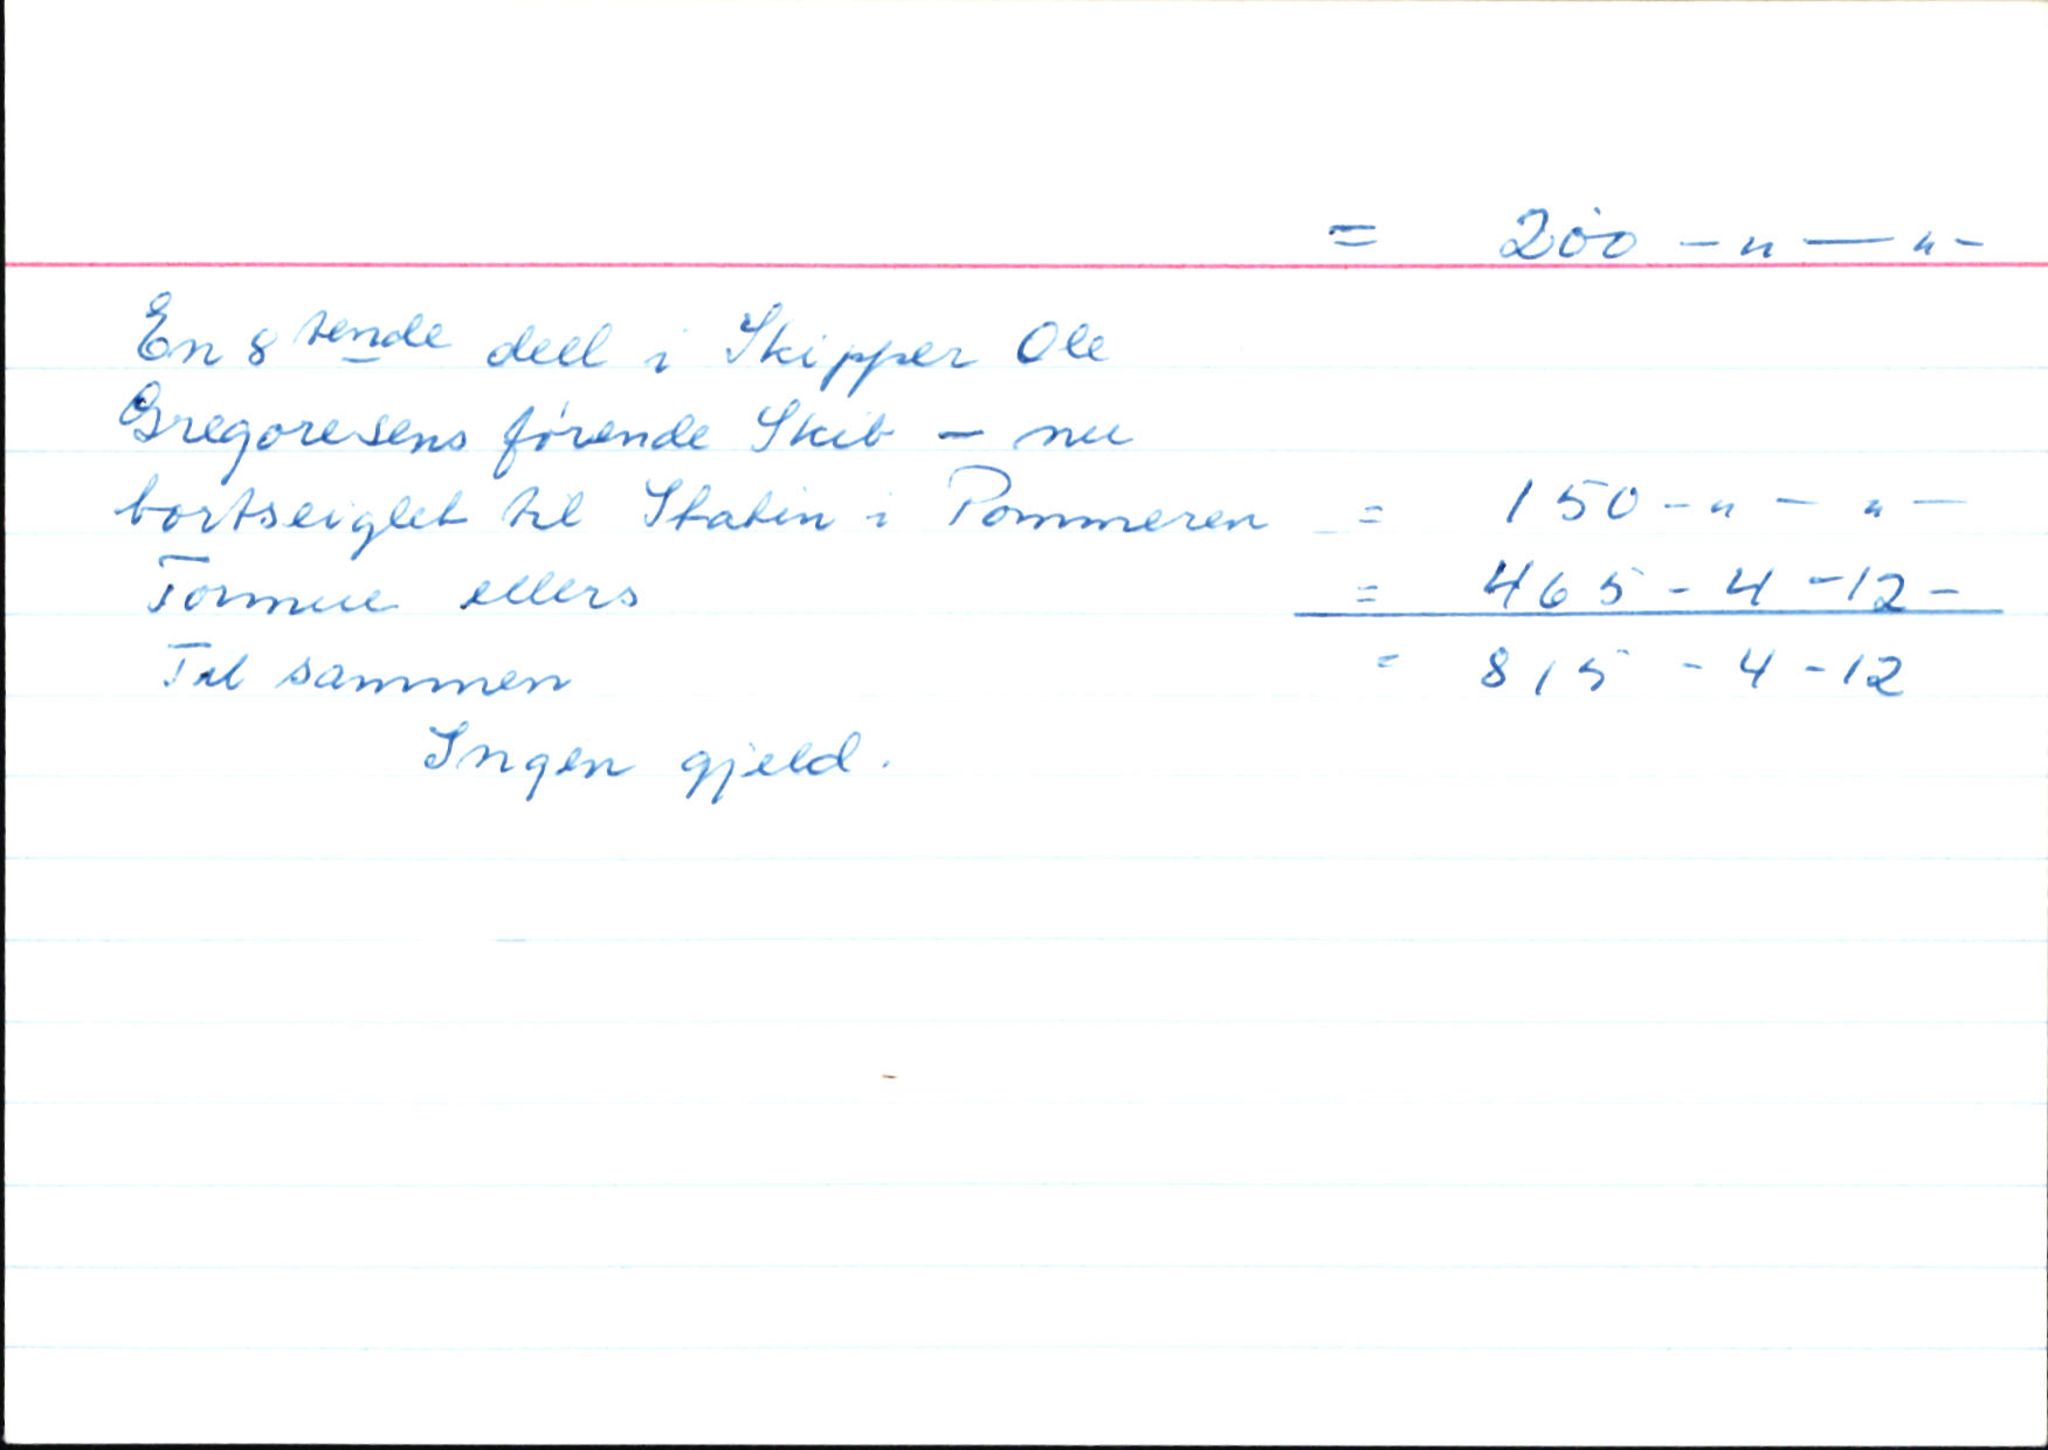 = 200 - " — " -
En 8 tende deel i Skipper Ole
Gregoresens førende Skib - nu
bortseiglet til Statin i Pommeren = 150 - " - " -
Formue ellers = 465 - 4 - 12 -
Til sammen = 815 - 4 - 12
Ingen gjeld.